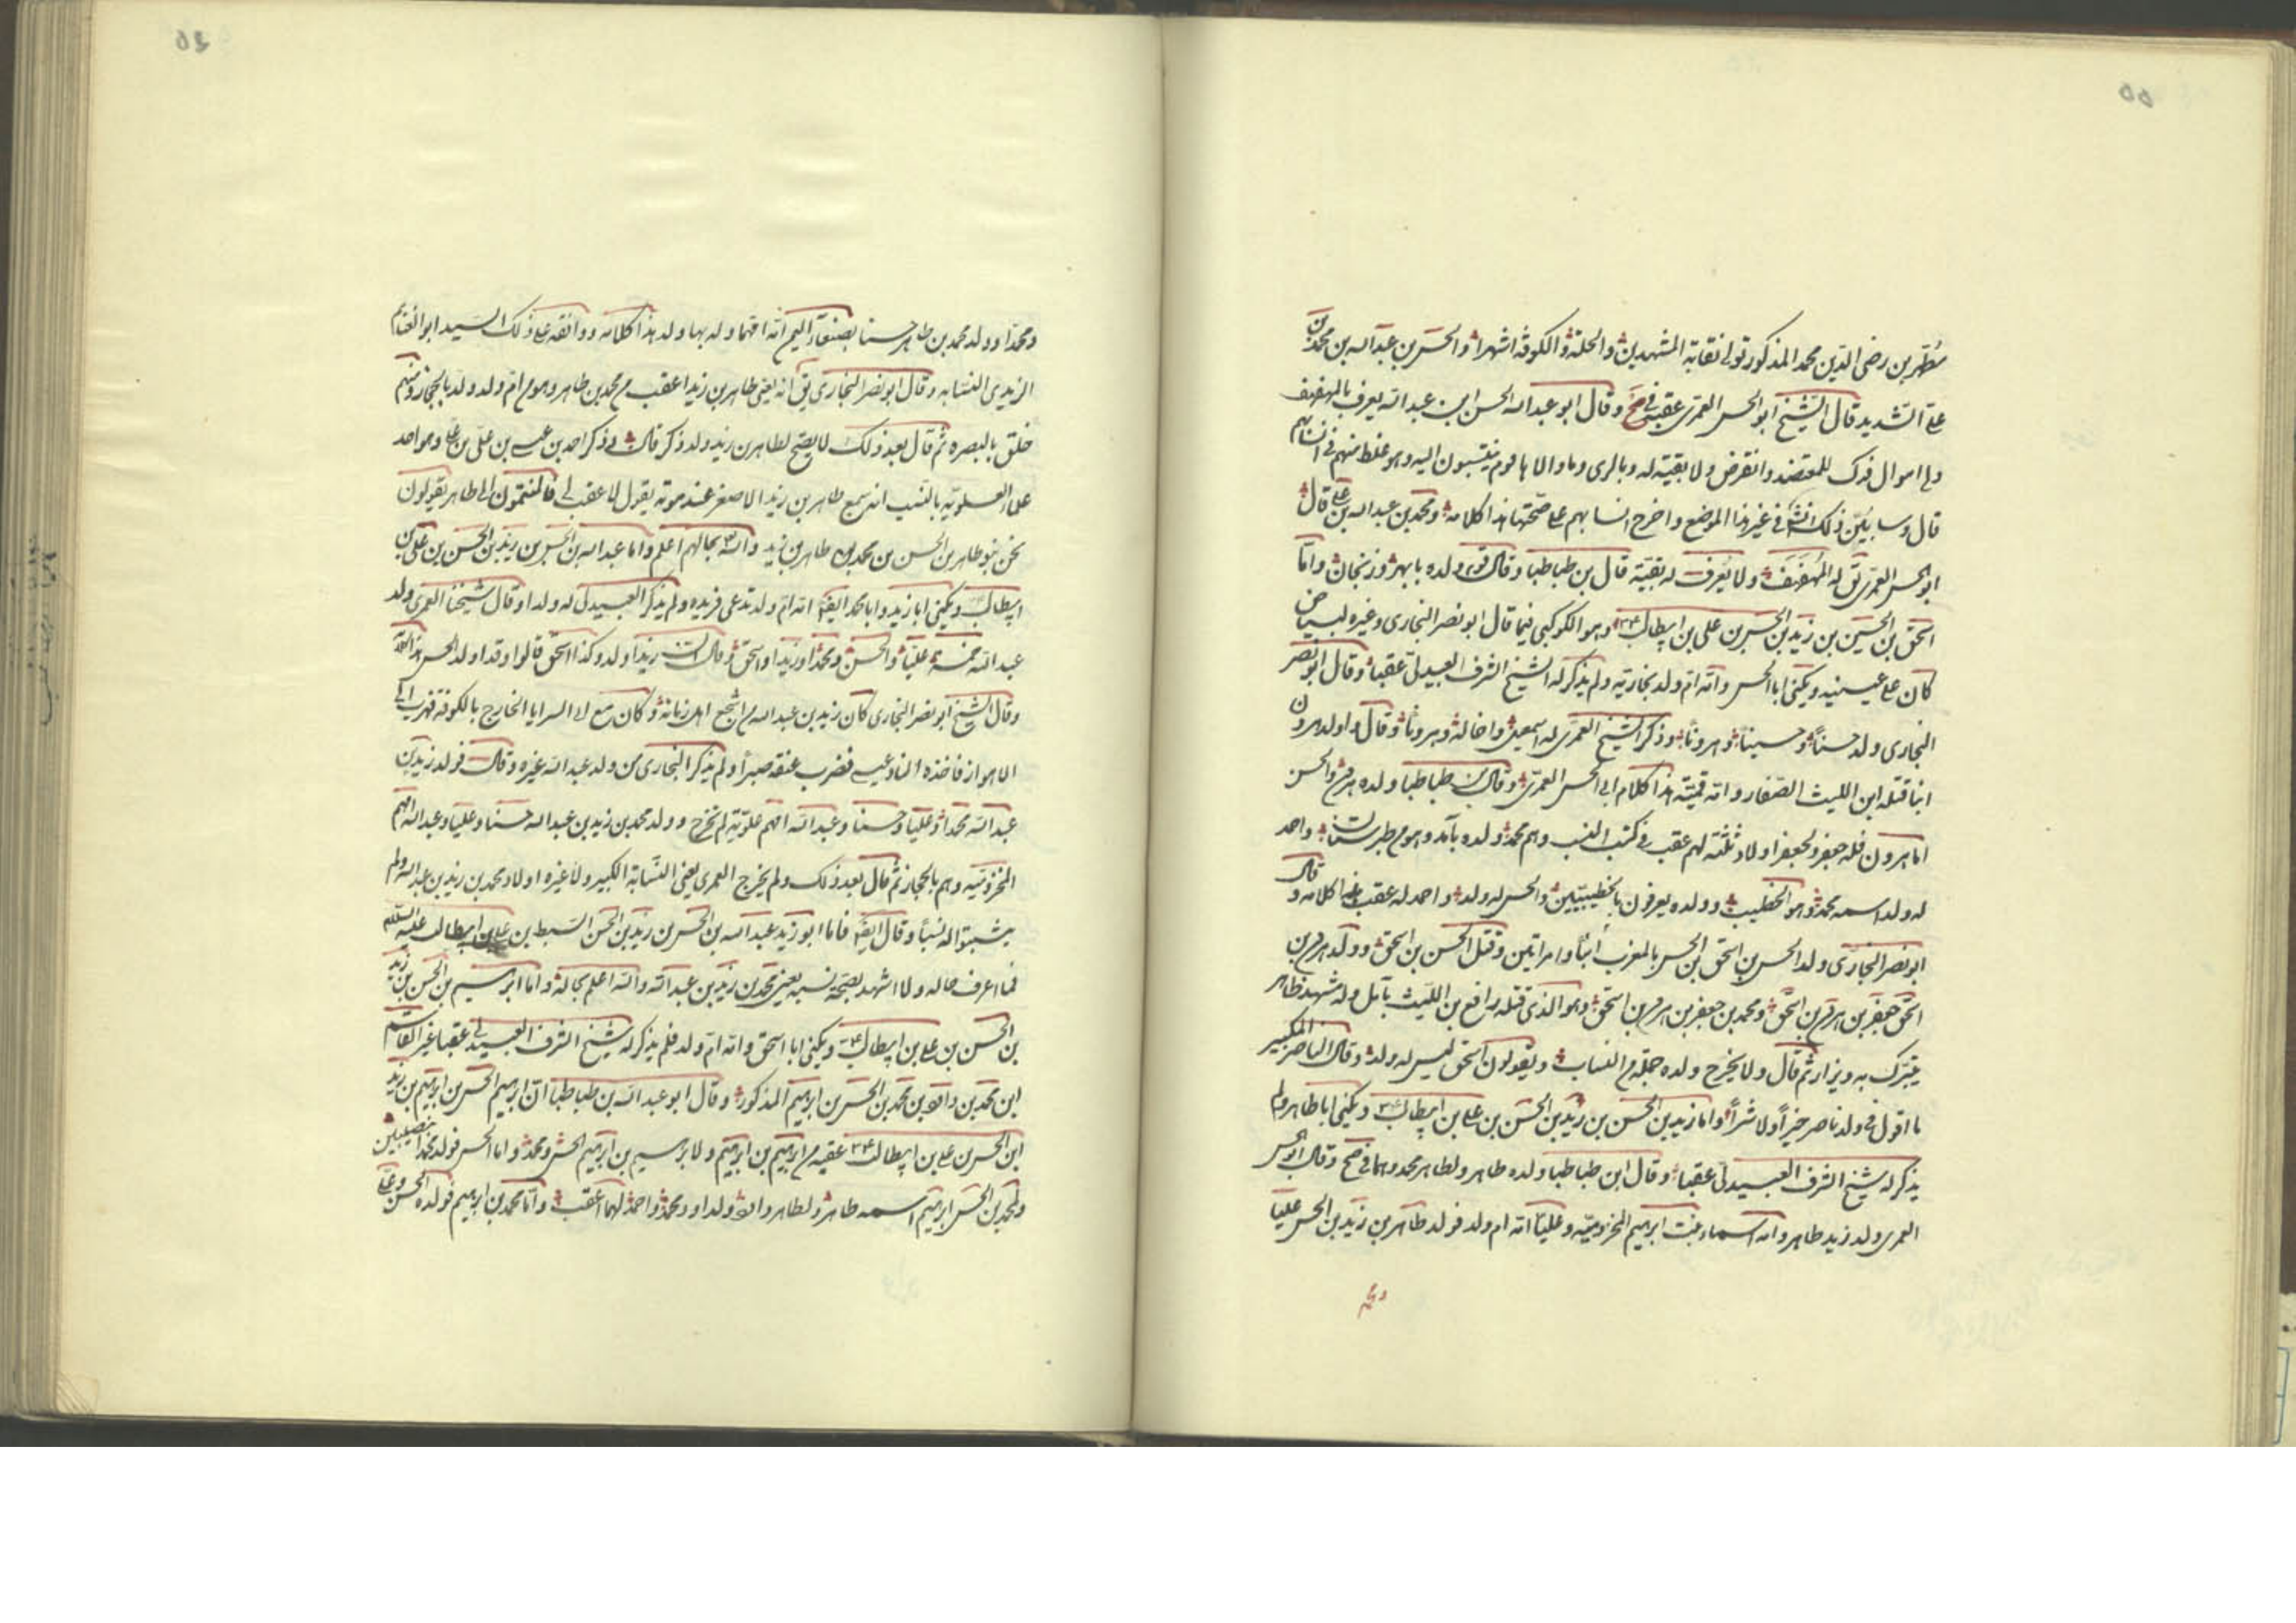 ٥٥
مطهر بن رضى الدين محمد المذكور تولى نقابة المشهدين والحلة والكوفة اشهرا والحسن بن عبد الله بن محمد بن
على الشديد قال الشيخ ابو الحسن العمرى عقبه فى صح وقال ابو عبد الله الحسن ابن عبد الله يعرف بالمهفهف
ولى اموال فدك للمعتضد وانقرض ولا بقية له وبالرى وما والاها قوم ينتسبون اليه وهو غلط منهم فى انسابهم
قال وسابين ذلك انشاء فى غير هذا الموضع واخرج انسابهم على صحتها هذا كلامه ومحمد بن عبد الله بن على قال
ابو الحسن العمرى يق له المهفهف ولا يعرف له بقية قال بن طباطبا وقال قوم ولده بابهر وزنجان واما
اسحق بن الحسن بن زيد بن الحسن بن على بن ابيطالب وهو الكوكبى فيما قال ابو نصر البخارى وغيره لبياض
كان على عينيه ويكنى ابا الحسن وانه ام ولد بخارية ولم يذكر له الشيخ الشرف العبيدلى عقبا وقال ابو نصر
البخارى ولد حسنا وحسينا وهرونا وذكر الشيخ العمرى له اسمعيل واخا له وهرونا وقال اولد هرون
ابنا قتله ابن الليث الصفار وانه قمية هذا كلام ابى الحسن العمرى وقال بن طباطبا ولده هرون والحسن
اما هرون فله جعفر ولجعفر اولاد ثلثة لهم عقب فى كتب النسب وهم محمد ولده بآمد وهو من طبرستان واحمد
له ولد اسمه محمد وهو الخطيب وولده يعرفون بالخطيبيين والحسن له ولد واحمد له عقب هذا كلامه وقال
ابو نصر البخارى ولد الحسن بن اسحق ابن الحسن بالمغرب ابنا وامراتين وقتل الحسن بن اسحق وولد هرون بن
اسحق جعفر بن هرون بن اسحق ومحمد بن جعفر بن هرون بن اسحق وهو الذى قتله رافع بن الليث بآمل وله مشهد ظاهر
يتبرك به ويزار ثم قال ولا يخرج ولده جملة من النساب ويقولون اسحق ليس له ولد وقال الناصر الكبير
ما اقول فى ولد ناصر خيرا ولا شرا واما زيد بن الحسن بن زيد بن الحسن بن على بن ابيطالب ويكنى ابا طاهر ولم
يذكر له شيخ الشرف العبيدلى عقبا وقال ابن طباطبا ولده طاهر ولطاهر محمد وهما فى صح وقال ابو الحسن
العمرى ولد زيد طاهر وامه اسماء بنت ابرهيم المخزومية وعليا امه ام ولد فولد طاهر بن زيد بن الحسن عليا
ومحمد
٥٤
ومحمدا وولد محمد بن طاهر حسنا بصنعاء اليمن امه اقها وله بها ولد هذا كلامه ووافقه على ذلك السيد ابو الغنايم
الزيدى النسابه وقال ابو نصر البخارى يق انه يعنى طاهر بن زيد اعقب من محمد بن طاهر وهو من ام ولد ولد بالحجاز ومنهم
خلق بالبصره ثم قال بعد ذلك لا يصح لطاهر بن زيد ولد ذكر قال فى ذكر احمد بن عيسى بن على بن على وهو احد
علماء العلوية بالنسب انه سمع طاهر بن زيد الاصغر عند موته يقول لا عقب لى فالمنتمون الى طاهر يقولون
نحن بنو طاهر بن الحسن بن محمد بن طاهر بن زيد والله بحالهم اعلم واما عبد الله بن الحسن بن زيد بن الحسن بن على بن
ابيطالب ويكنى ابا زيد وابا محمد ايضا امه ام ولد تدعى فريده ولم يذكر العبيدلى له ولدا وقال شيخنا العمرى ولد
عبد الله خمسة عليا والحسن ومحمدا وزيدا واسحق وقال ان زيدا ولد وكذا اسحق قالوا وقد اولد الحسن
وقال الشيخ ابو نصر البخارى كان زيد بن عبد الله من اشجع اهل زمانه وكان مع ابى السرايا الخارج بالكوفة فهرب الى
الاهواز فاخذه فضرب عنقه صبرا ولم يذكر البخارى من ولد عبد الله غيره وقال فولد زيد بن
عبد الله محمدا وعليا وحسنا وعبد الله امهم علوية لم تخرج وولد محمد بن زيد بن عبد الله حسنا وعليا وعبد الله امهم
المخزومية وهم بالحجاز ثم قال بعد ذلك ولم يخرج العمرى يعنى النسابة الكبير ولا غيره اولاد محمد بن زيد بن عبد الله ولم
يثبتوا له نسبا وقال ايضا فاما ابو زيد عبد الله بن الحسن بن زيد بن الحسن السبط بن على بن ابيطالب عليه السلام
فما اعرف حاله ولا اشهد بصحة نسبه يعنى محمد بن زيد بن عبد الله والله اعلم بحاله واما ابرهيم بن الحسن بن زيد
بن الحسن بن على بن ابيطالب ويكنى ابا اسحق وانه ام ولد فلم يذكر له شيخ الشرف العبيدلى عقبا غير القاسم
ابن محمد بن داود بن محمد بن الحسن بن ابرهيم المذكور وقال ابو عبد الله بن طباطبا ان ابرهيم الحسن بن ابرهيم بن زيد
ابن الحسن بن على بن ابيطالب عقبه من ابرهيم بن ابرهيم ولابرهيم بن ابرهيم الحسن ومحمد واما الحسن فولد محمدا بنصيبين
ولمحمد بن الحسن ابرهيم اسمه طاهر ولطاهر داود ولداود محمد واحمد لهما عقب واما محمد بن ابرهيم فولده الحسن وعلى